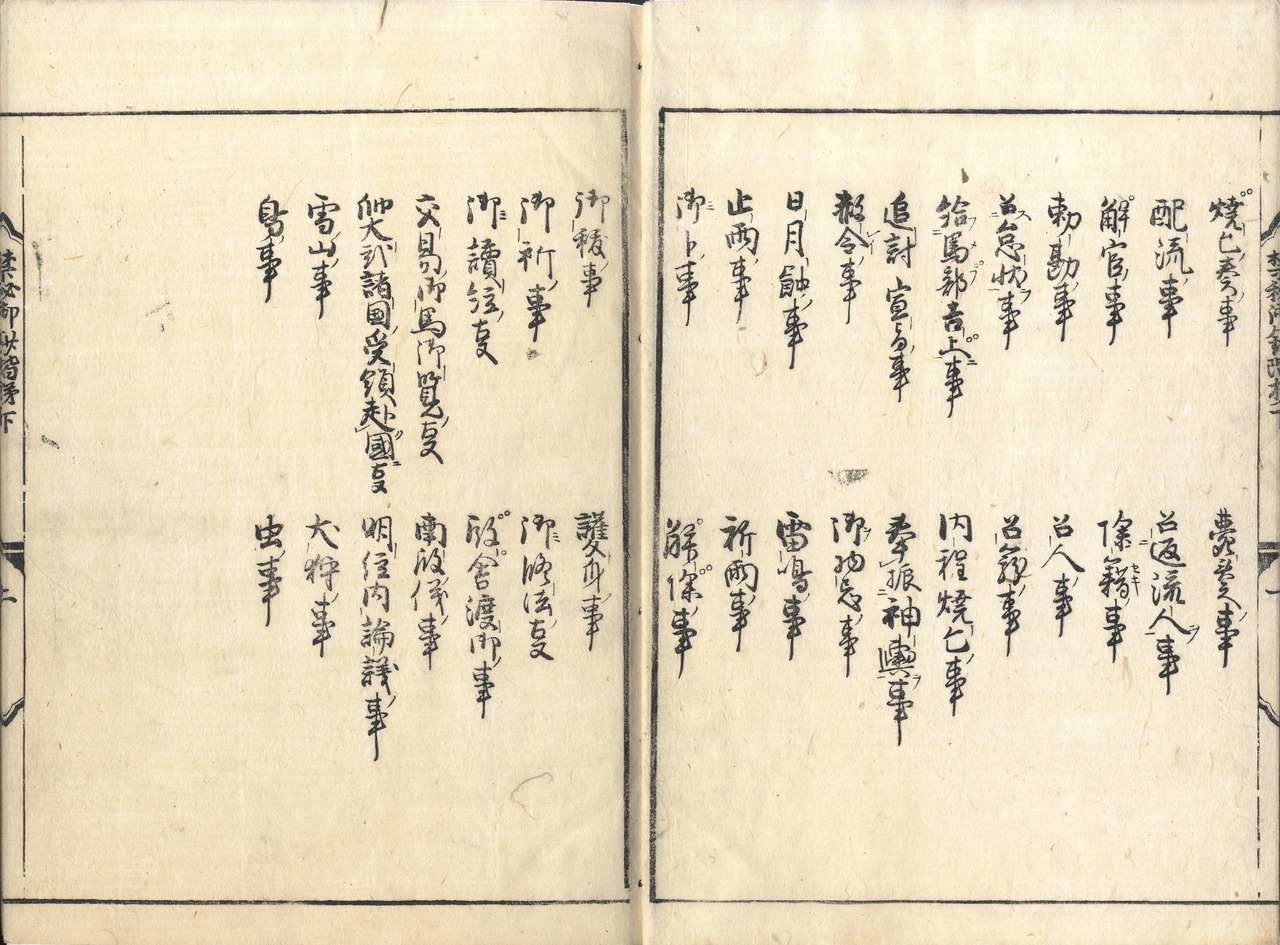 焼亡奏事　薨奏事
配流事　召返流人事
解官事　除籍事
勅勘事　召人事
召怠状事　召籠事
給馬部吉上事　内裡焼亡事
追討宣旨事　奉振神輿事
赦令事　御物忌事
日月蝕事　雷鳴事
止雨事　祈雨事
御卜事　解除事
御祓事　護身事
御祈事　御修法叓
御讀経叓　殿舎渡御事
交易御馬御覧叓　南殿儀事
帥大弐諸國受領赴國叓　明経内論議事
雪山事　犬狩事
鳥事　虫事
禁祕御抄階梯下　二